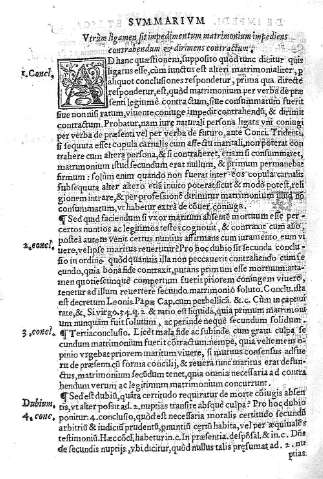 SVMMARIVM
Vtrùm ligamen sit impedimentum matrimonium impediens
contrahendum & dirimens contractum.
1. Concl.
AD hanc quæstionem, supposito quòd tunc dicitur quis
ligatus esse, cùm iunctus est alteri matrimonialiter, p
aliquot conclusiones respondetur, prima qua directè
respondetur, est, quòd matrimonium per verba de præ
senti legitimè contractum, siue consummatum fuerit
siue non nisi ratum, viuente coniuge impedit contrahendũ, & dirimit
contractum. Probatur, nam iure naturali persona ligata vni coniugi
per verba de præsenti vel per verba de futuro, ante Conci. Trident.
si sequuta esset copula carnalis cum affectu maritali, nõ poterat con
trahere cum altera persona, & si contraheret, etiam si consummaret,
matrimonium istud secundum erat nullum, & primum permanebat
firmum: solùm enim quando non fuerat inter eos copula carnalis
subsequuta alter altero etiã inuito poterat sicut & modò potest, reli
gionem intrare, & per professionẽ dirimitur matrimonium illud nõ
consummatum, vt habetur extra de conuer. coniuga.
¶ Sed quid faciendum si vxor mariti absentis mortuum esse per
certos nuntios ac legitimos testes cognouit, & contraxit cum alio
2. concl.
postea autem venit certus nuntius affirmans cum iuramento, eum vi
uere, vel ipse maritus reuertitur? Pro hoc dubio sit secunda conclu-
sio in ordine quòd quamuis illa non peccauerit contrahendo cum se
cundo, quia bona fide contraxit, putans primum esse mortuum: attamen
quotiescunque compertum fuerit priorem coniugem viuere,
tenetur ad illum reuertere secundo matrimonio soluto. Conclu. ista
est decretum Leonis Papæ Cap. cum per bellicã. &c. Cùm in captiui
tate, &, Si virgo. 34. q. 2. & ratio est liquida, quia primum matrimoni
um nunquam fuit solutum, ac perinde neque secundum solidum.
3. concl.
¶ Tertia conclusio. Licèt mala fide ac subinde cum graui culpa se
cundum matrimonium fuerit contractum: nempe, quia vel nemo com
periò vrgebat priorem maritum viuere, si mutuus consensus adfue
rit de præsenti cũ forma concilij, & reuera tunc maritus erat defun-
ctus, matrimonium secundum tenet, quia omnia necessaria ad contra
hendum verum ac legitimum matrimonium concurrunt.
Dubium.
¶ Sed est dubiũ, quãta certitudo requiratur de morte cõiugis absen
tis, vt alter possit ad. 2. nuptias transire absque culpa? Pro hoc dubio
4. conc.
ponitur. 4. conclusio, quòd est necessaria moralis certitudo secundũ
arbitriũ & iudiciũ prudentũ, pronuntij certũ habita, vel per æquiualẽs
testimoniũ. Hæc cõcl. habetur in c. In præsentia. de spõsal. & in c. Dñs
de secundis nuptijs, vbi dicitur, quòd nullus talis præsumat ad. 2. nu
ptias